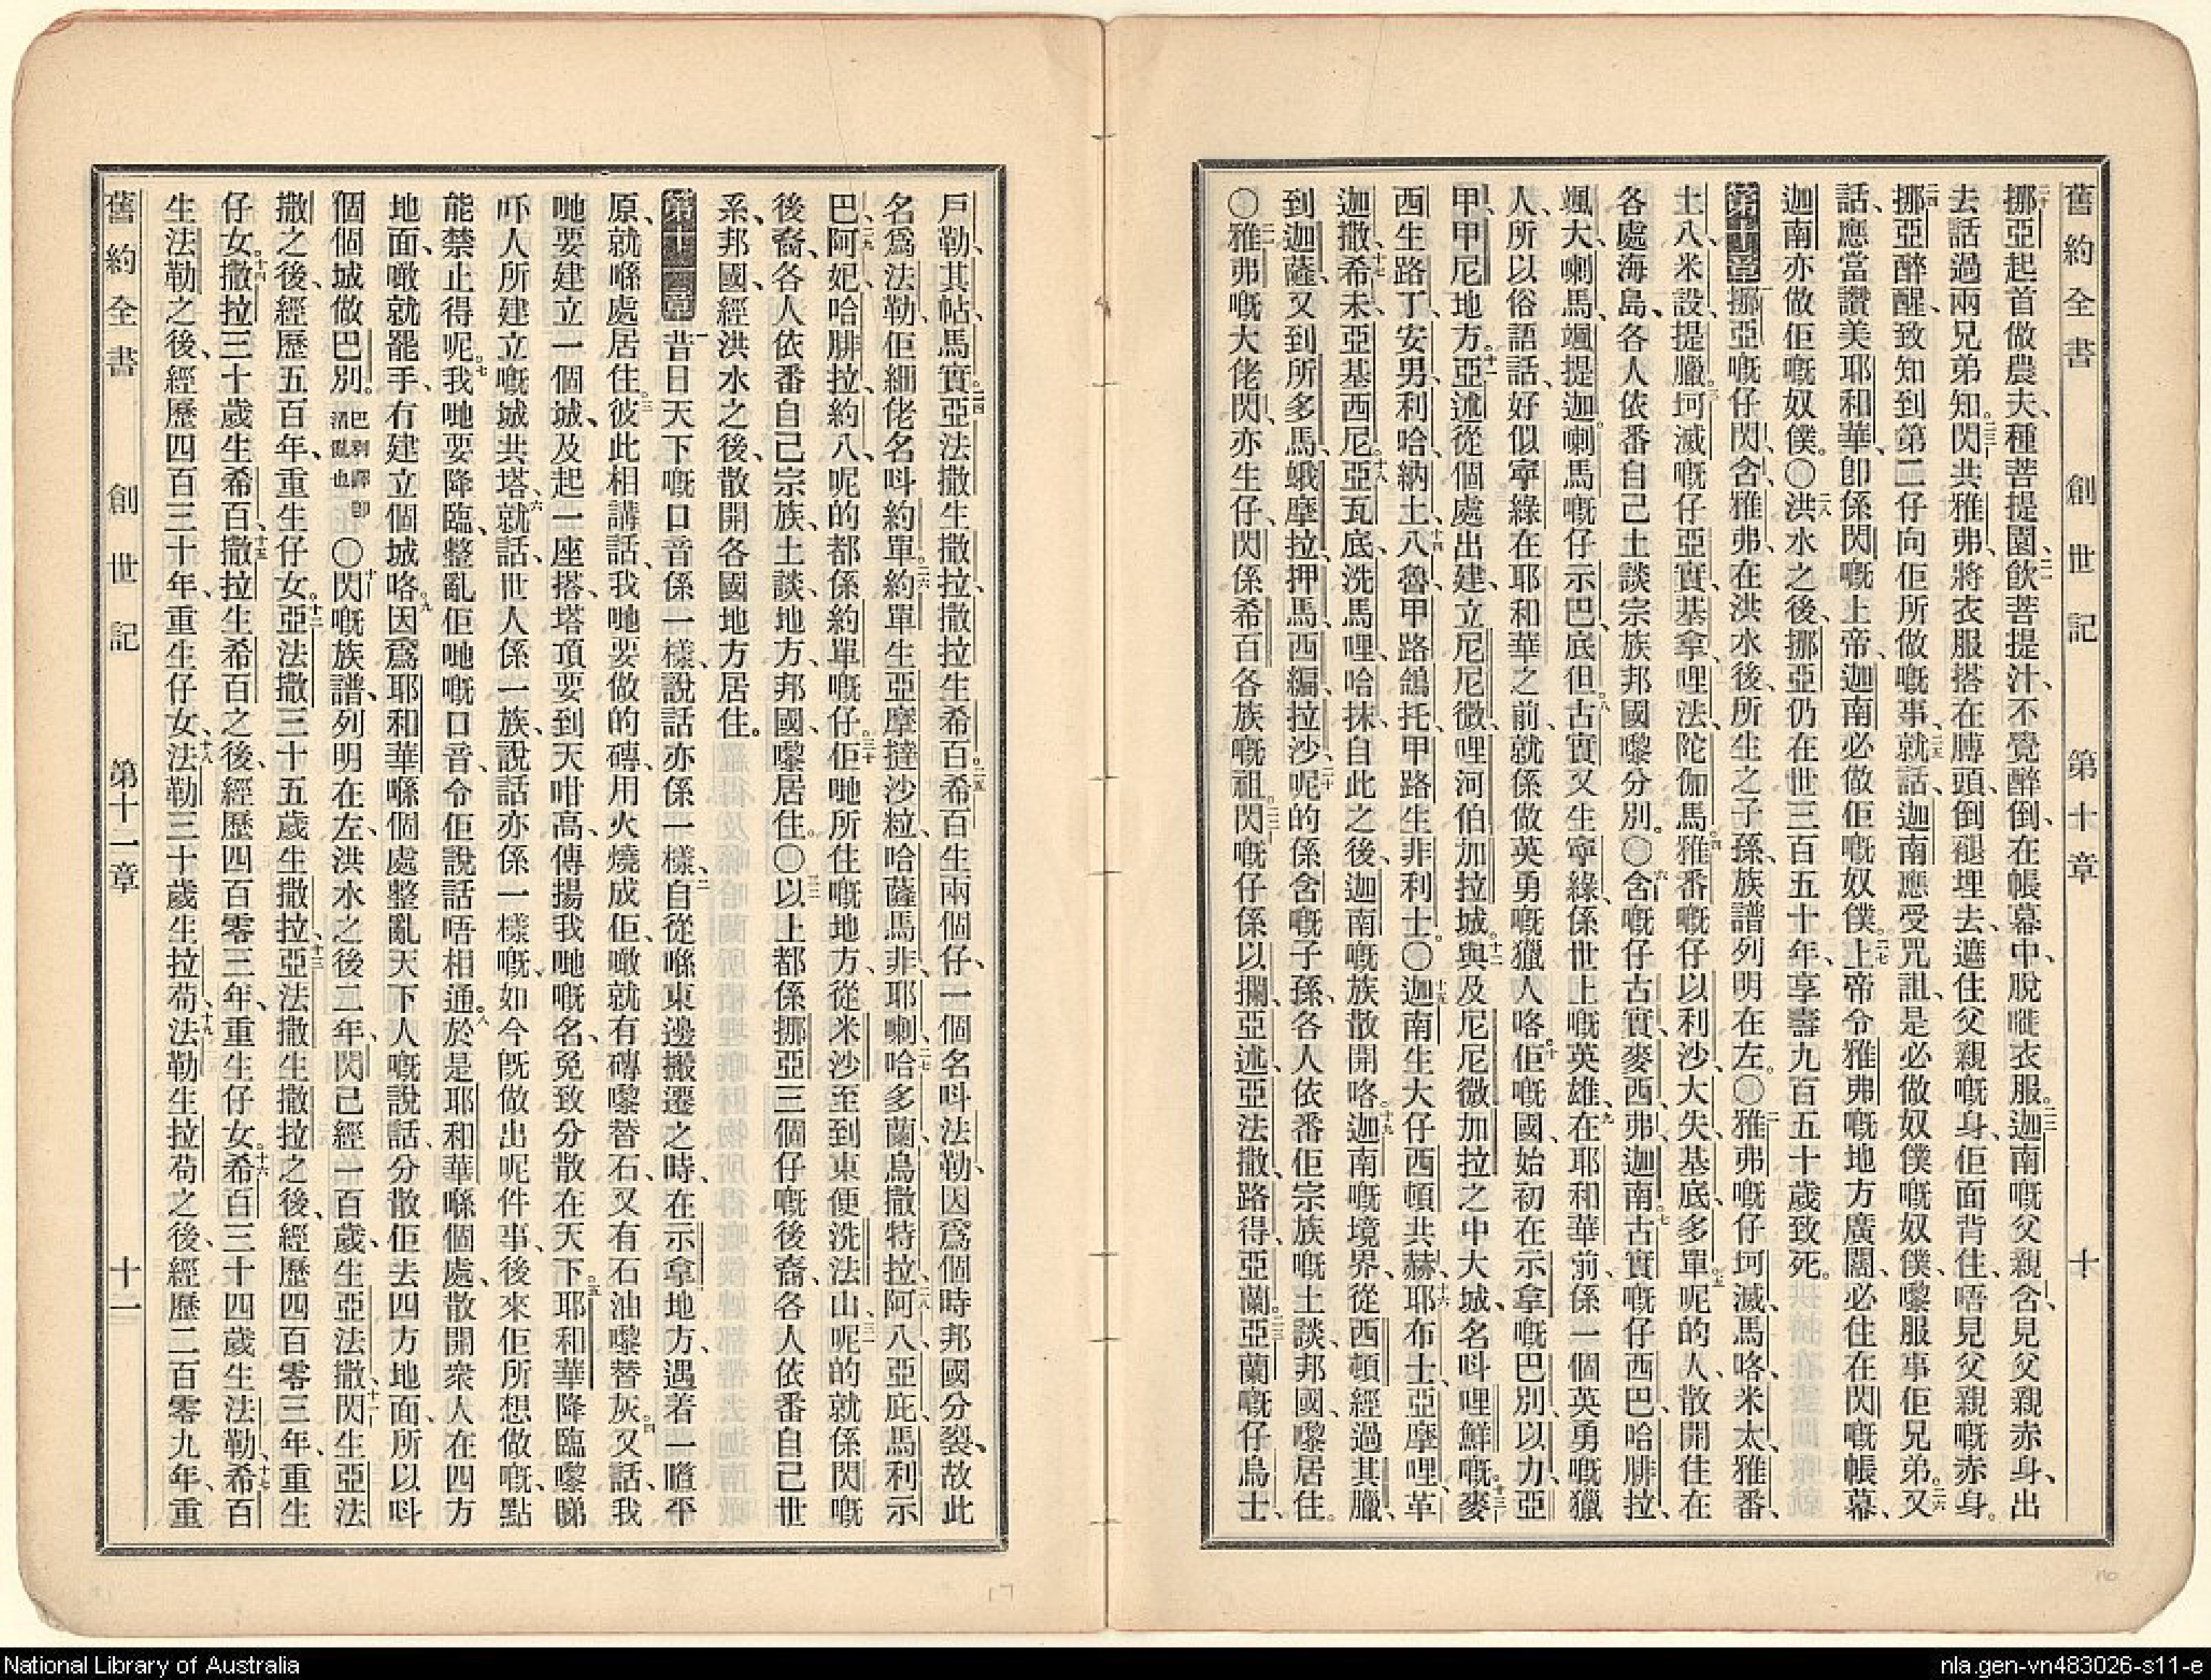 舊約全書 創世記 第十章 十
挪亞起首做農夫、種菩提園、飲菩提汁、不覺醉倒、在帳幕中、脫嘥衣服。迦南嘅父親含、見父親赤身、出
去話過兩兄弟知。閃共雅弗、將衣服搭在膊頭、倒褪埋去、遮住父親嘅身、佢面背住、唔見父親嘅赤身。
挪亞醉醒、致知到第二仔向佢所做嘅事、就話、迦南應受咒詛、是必做奴僕嘅奴僕、嚟服事佢兄弟。又
話、應當讚美耶和華、卽係閃嘅上帝、迦南必做佢嘅奴僕。上帝令雅弗嘅地方廣闊、必住在閃嘅帳幕、
迦南亦做佢嘅奴僕。〇洪水之後、挪亞仍在世三百五十年、享壽九百五十歲致死。
挪亞嘅仔閃、含、雅弗、在洪水後、所生之子孫、族譜列明在左。〇雅弗嘅仔坷滅、馬咯、米太、雅番、
土八、米設、提臘。坷滅嘅仔亞實基拿、哩法、陀伽馬。雅番嘅仔以利沙、大失、基底、多單。呢的人、散開住在
各處海島、各人依番自己土談宗族邦國嚟分別。〇含嘅仔古實、麥西、弗、迦南。古實嘅仔西巴、哈腓拉、
颯大、喇馬、颯提迦。喇馬嘅仔示巴、底但。古實又生寧綠、係世上嘅英雄、在耶和華前、係一個英勇嘅獵
人、所以俗語話、好似寧綠在耶和華之前、就係做英勇嘅獵人咯。佢嘅國、始初在示拿嘅巴別、以力、亞
甲、甲尼地方。亞述從個處出、建立尼尼微、哩河伯、加拉城。與及尼尼微加拉之中大城、名呌哩鮮嘅。麥
西生路丁、安男、利哈、納土、八魯、甲路鴿托、甲路生非利士。〇迦南生大仔西頓、共赫、耶布士、亞摩哩、革
迦撒、希未、亞基、西尼。亞瓦底、洗馬哩、哈抹、自此之後、迦南嘅族散開咯。迦南嘅境界、從西頓經過其臘、
到迦薩、又到所多馬、蛾摩拉、押馬、西編、拉沙、呢的係含嘅子孫、各人依番佢宗族嘅土談、邦國、嚟居住。
〇雅弗嘅大佬閃、亦生仔、閃係希百各族嘅祖。閃嘅仔係以攔、亞述、亞法撒、路得、亞蘭。亞蘭嘅仔烏士、
戶勒、其帖、馬實。亞法撒生撒拉、撒拉生希百。希百生兩個仔、一個名呌法勒、因爲個時邦國分裂、故此
名爲法勒、佢細佬名呌約單。約單生亞摩撻、沙粒、哈薩馬非、耶喇、哈多蘭、烏撒、特拉、阿八、亞庇、馬利、示
巴、阿妃、哈腓拉、約八、呢的都係約單嘅仔。佢哋所住嘅地方、從米沙至到東便洗法山、呢的就係閃嘅
後裔、各人依番自己宗族、土談、地方、邦國、嚟居住。〇以上都係挪亞三個仔嘅後裔、各人依番自己世
系、邦國、經洪水之後、散開各國地方居住。
第十一章 昔日天下嘅口音係一樣、說話亦係一樣、自從喺東邊搬遷之時、在示拿地方、遇着一撘平
原、就喺處居住。彼此相講話、我哋要做的磚、用火燒成佢、噉就有磚嚟替石、又有石油嚟替灰。又話、我
哋要建立一個城、及起一座搭、塔頂要到天咁高、傳揚我哋嘅名、免致分散在天下。耶和華降臨嚟睇
吓人所建立嘅城共塔、就話、世人係一族、說話亦係一樣嘅、如今旣做出呢件事、後來佢所想做嘅、點
能禁止得呢。我哋要降臨、整亂佢哋嘅口音、令佢說話唔相通。於是耶和華喺個處、散開衆人在四方
地面、噉就罷手、有建立個城咯。因爲耶和華喺個處整亂天下人嘅說話、分散佢去四方地面、所以呌
個個城做巴別。巴別譯卽淆亂也〇閃嘅族譜、列明在左、洪水之後二年、閃已經一百歲、生亞法撒、閃生亞法
撒之後、經歷五百年、重生仔女。亞法撒三十五歲生撒拉、亞法撒生撒拉之後、經歷四百零三年、重生
仔女。撒拉三十歲生希百、撒拉生希百之後、經歷四百零三年、重生仔女。希百三十四歲生法勒、希百
生法勒之後、經歷四百三十年、重生仔女、法勒三十歲生拉茍、法勒生拉茍之後、經歷二百零九年、重
舊約全書 創世記 第十二章 十一
National Library of Australia
nla.gen-vn483026-s11-e